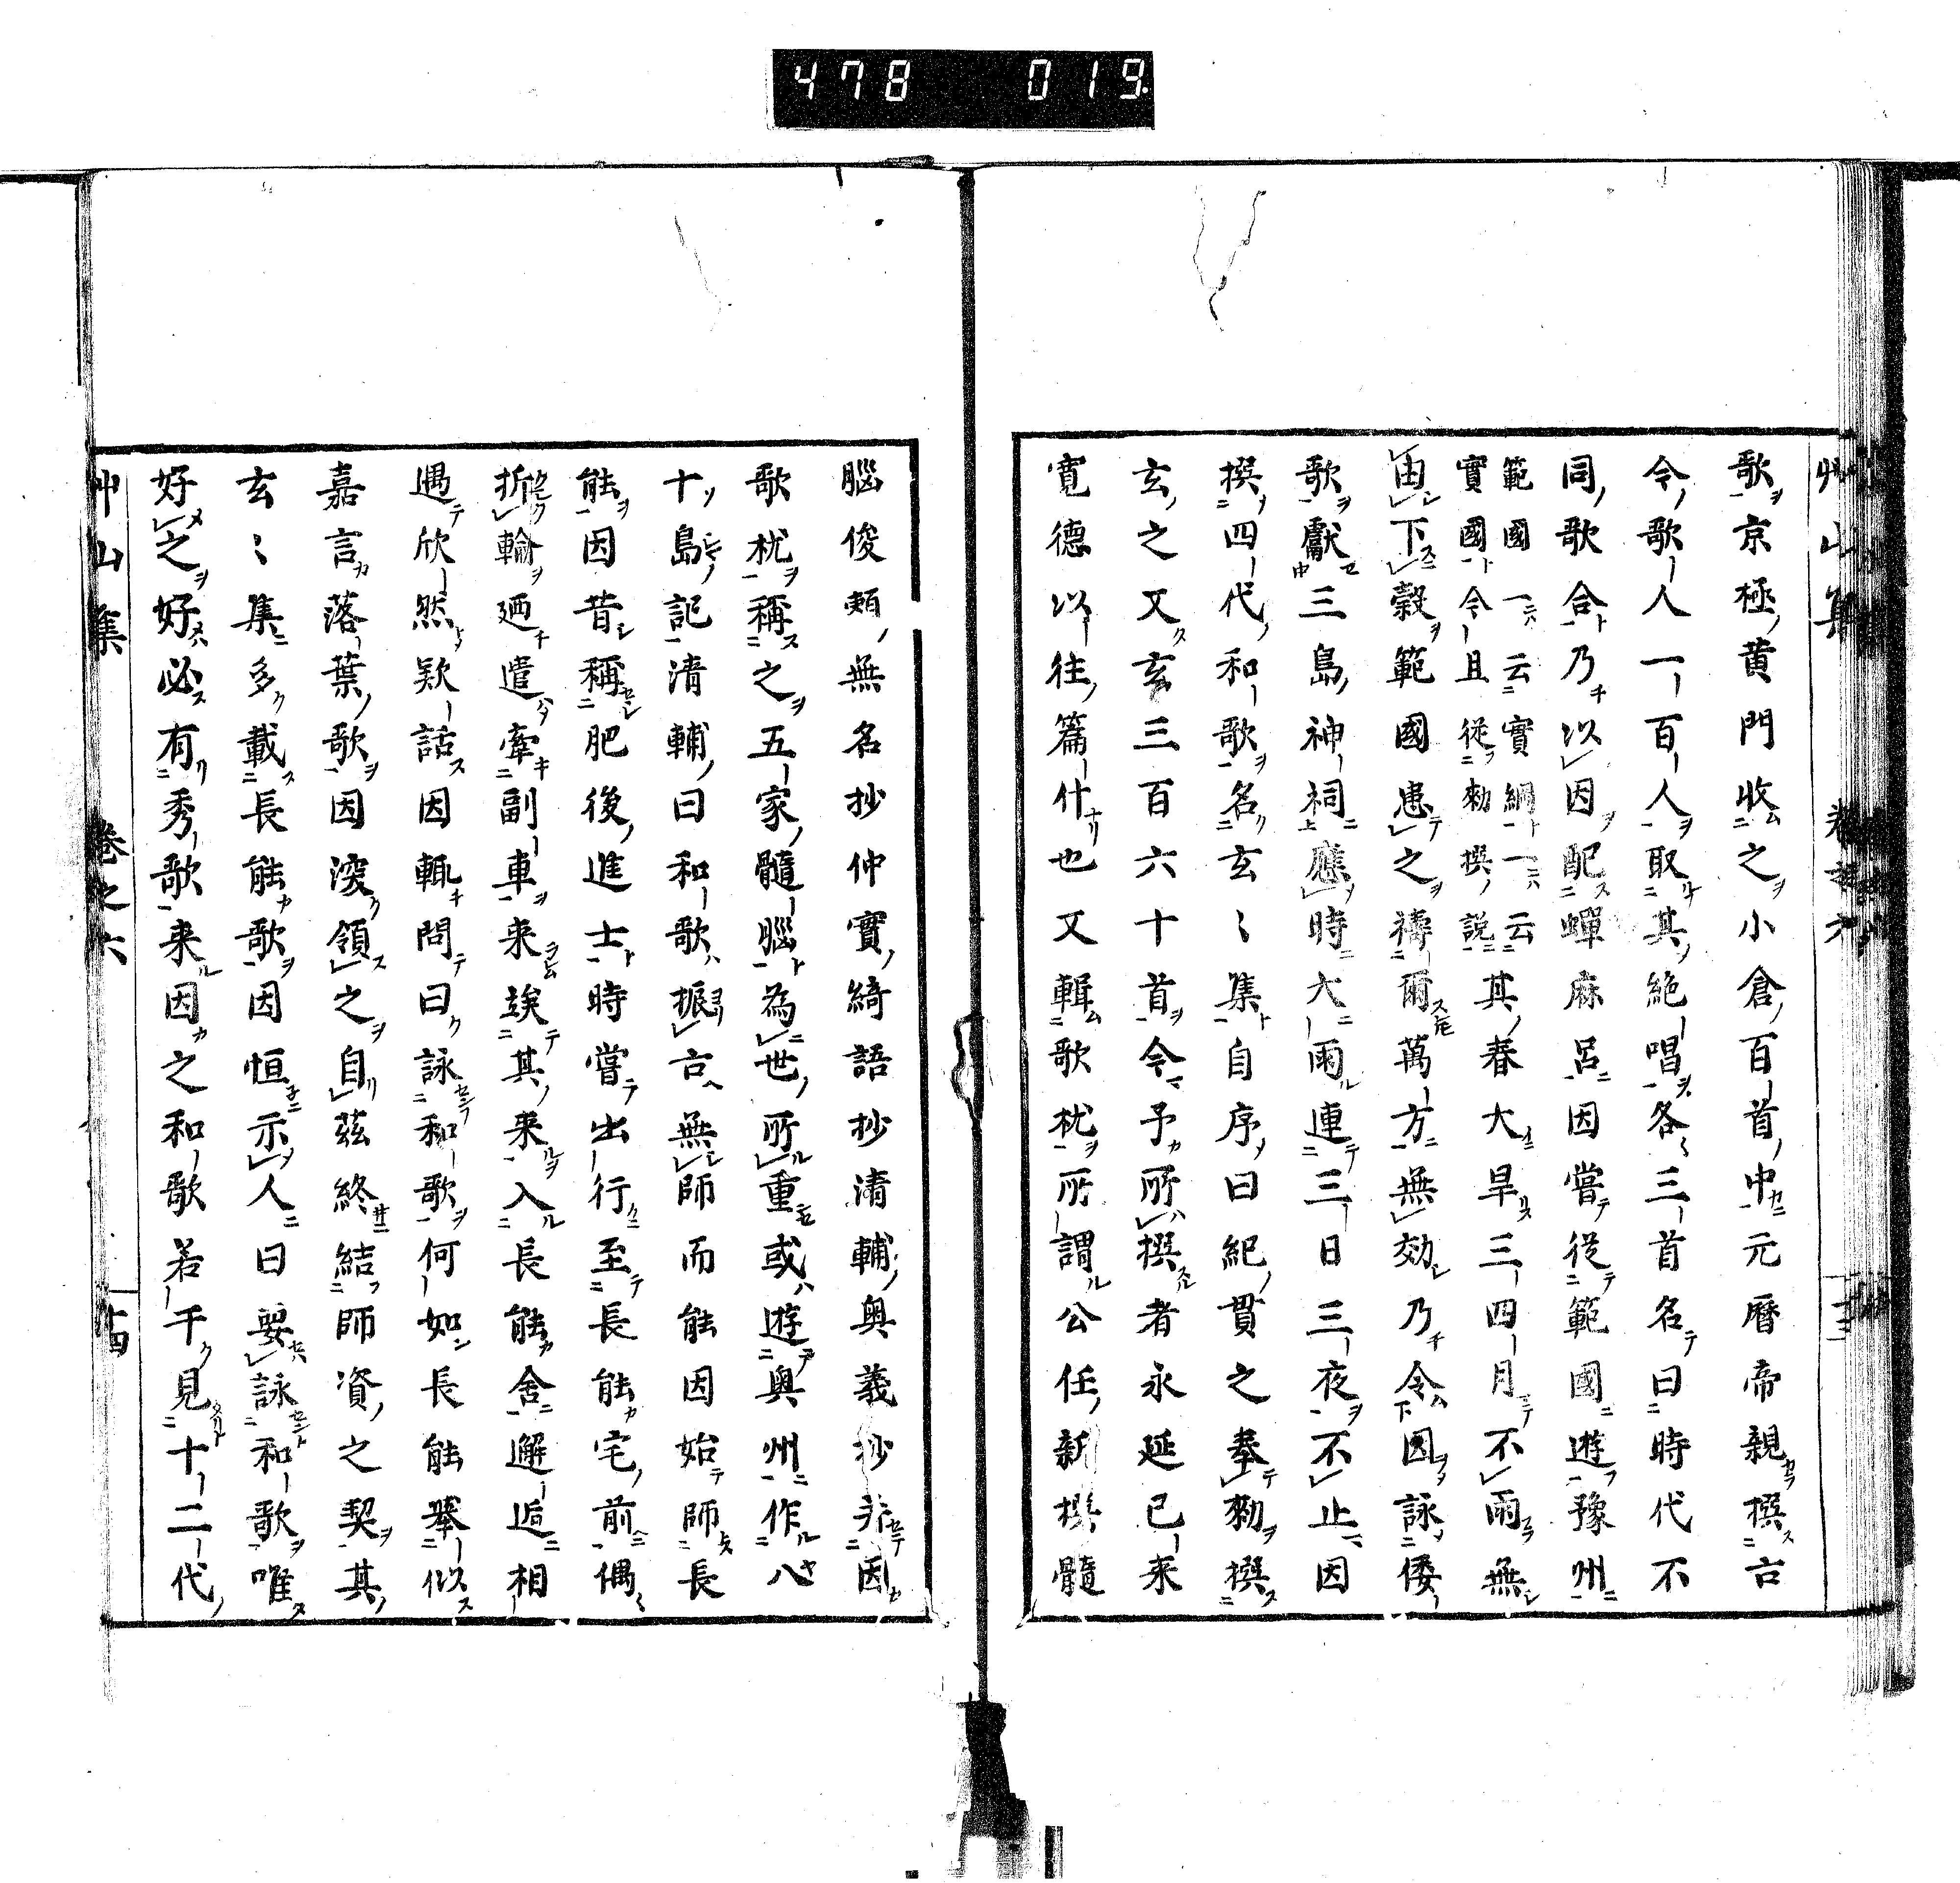 478 019
艸山集 卷之六
歌京極黄門收之小倉百首中元暦帝親撰古
今歌人一百人取其絶唱各三首名曰時代不
同歌合乃以因配蟬麻呂因嘗從範國遊豫州
範國一云實綱一云
實國今且從勅撰説
其春大旱三四月不雨無
由下穀範國患之禱爾萬方無効乃令因詠倭
歌獻三島神祠應時大雨連三日三夜不止因
撰四代和歌名玄〻集自序曰紀貫之奉勅撰
玄之又玄三百六十首今予所撰者永延已来
寛德以往篇什也又輯歌枕所謂公任新撰髓
腦俊頼無名抄仲實綺語抄清輔奥義抄并因
歌枕稱之五家髓腦為世所重或遊奥州作八
十島記清輔曰和歌振古無師而能因始師長
能因昔稱肥後進士時嘗出行至長能宅前偶
折輪廼遣牽副車来竢其来入長能舍邂逅相
遇欣然款話因輒問曰詠和歌何如長能舉似
嘉言落葉歌因深領之自茲終結師資之契其
玄〻集多載長能歌因恒示人曰要詠和歌唯
好之好必有秀歌来因之和歌若干見十二代
艸山集 卷之六 十四